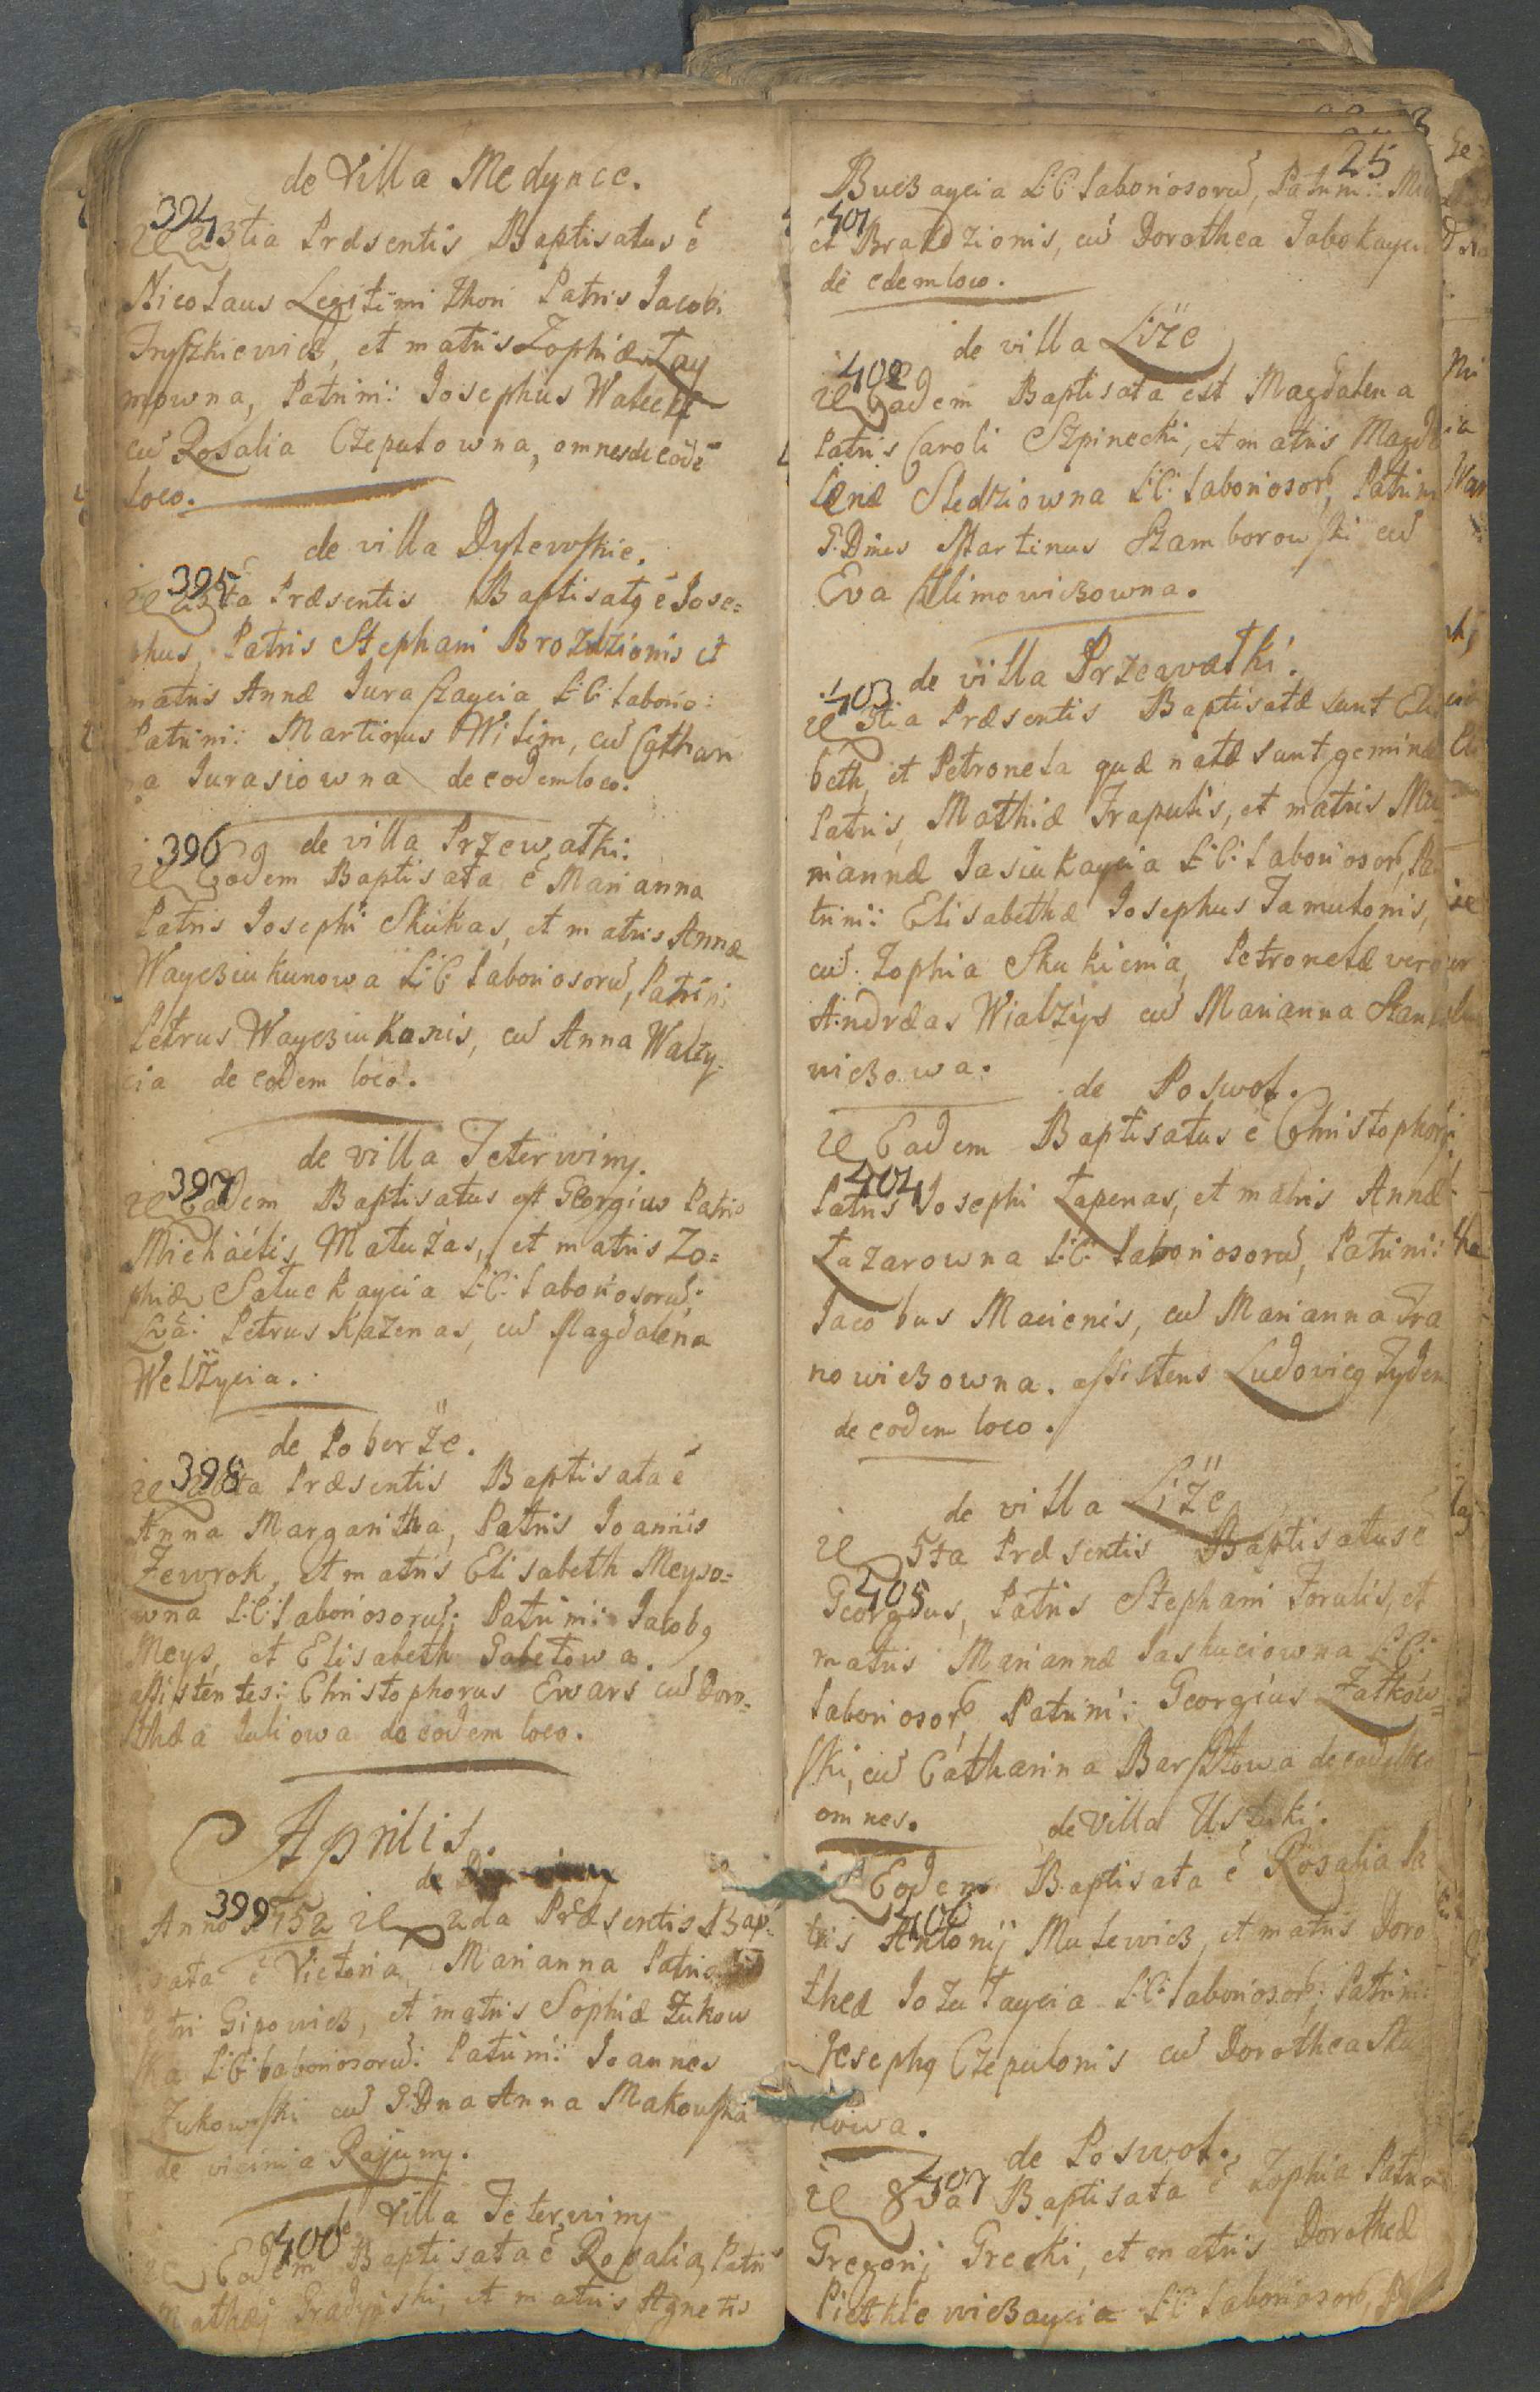 de Villa Medynce.
394
23tia Præsentis Baptisatus ē
Nicolaus Legitimi thori Patris Jacobi
et matris Zophiæ Tay
mowna, Patrini: Josephus
cu Rosalia Czeputowna, omnes de eodē
loco.
de villa Dylewskie.
395
Præsentis Baptisatq ē Jose=
phus, Patris Stephani Brozdzionis et
matris Annæ Juraszaycia L:C: laborio:
Patrini: Martinus Wilim, cu Cathari
na Jurasiowna de eodem loco.
de villa Przewatki.
396
Eodem Baptisata ē Marianna
Patris Josephi Skukas, et matris Annæ
Waycziukunowa L:C laboriosoru, Patrini
Petrus Waycziukonis, cu Anna Walty-
cia de eodem loco.
de villa Teterwiny.
397
Eadem Baptisatus est Georgius Patris
Michaelis Matuzas, et matris Zo=
phiæ Satuckaycia L:C: laboriosoru;
Petrus Kazenas, cu Magdalena
Welzycia.
de Poberże.
398
Præsentis Baptisata ē
Anna Margaritha, Patris Joannis
Zewrok, et matris Elisabeth Meyso=
wna L:C: laboriosoru; Patrini: Jacobq
Meys, et Elisabeth Gabetowa.
assistentes: Christophorus Ewars cu Doro=
thea Juliowa de eodem loco.
Aprilis
de
399
Anno 1752 2da Præsentis Bap-
tisata ē Victoria Marianna Patris
Petri Gipowicz, et matris Sophiæ Zukow
ska L:C: laboriosoru: Patrini: Joannes
Zukowski cu G:Dna Anna Makowska
de vicinia Rajuny.
400
de Villa Teterwiny
Eodem Baptisata ē Rosalia, Patris
Mathæj et matris Agnetis
25
Buczaycia L:C: laboriosoru, Patrini:
401
et Brazdzionis, cu Dorothea Jabokayci
de edem loco.
de villa Liże
402
Eadem Baptisata est Magdalena
Patris Caroli Szpinecki, et matris Magda
lenæ Sledziowna L:C: laboriosor, Patrini
G:Dnus Martinus Szamborowski cu
Eva Klimowiczowna.
de villa Przewatki.
403
3tia Præsentis Baptisatæ sunt Elisa
beth, et Petronela quæ natæ sunt geminæ
Patris, Mathiæ Trapulis, et matris Ma
riannæ Jasiukaycia L:C: laboriosor, Pa
trini: Elisabethæ Josephus Jamutonis,
cu Zophia Skukienia, Petronelæ vero
Andræas Wialzys cu Marianna Stanke
wiczowa.
de Poswol.
Eadem Baptisatus ē Christophorq
404
Patris Josephi Łapenas, et matris Annæ
Łazarowna L:C: laboriosoru, Patrini:
Jacobus Macienis, cu Marianna Tra
nowiczowna. assistens Ludovicq Tyden
de eodem loco.
de villa Liże
5ta Præsentis Baptisatus ē
405
Georgius, Patris Stephani Torulis, et
matris Mariannæ Jaskuciowna L:C:
laboriosor, Patrini: Georgius Zatkow=
ski, cu Catharina Barsztowa de eodem loco
omnes.
de Villa Ustuki.
Eodem Baptisata ē Rosalia Pa
406
tris Antonij Mulewicz, et matris Doro
theæ Jozutaycia L:C: laboriosor; Patrini:
Josephq Czepulonis cu Dorothea Sku
kowa.
de Poswol.
407
8va Baptisata ē Zophia Patris
Gregorij Grecki, et matris Dorotheæ
Pietkiewiczaycia L:C: laboriosor,